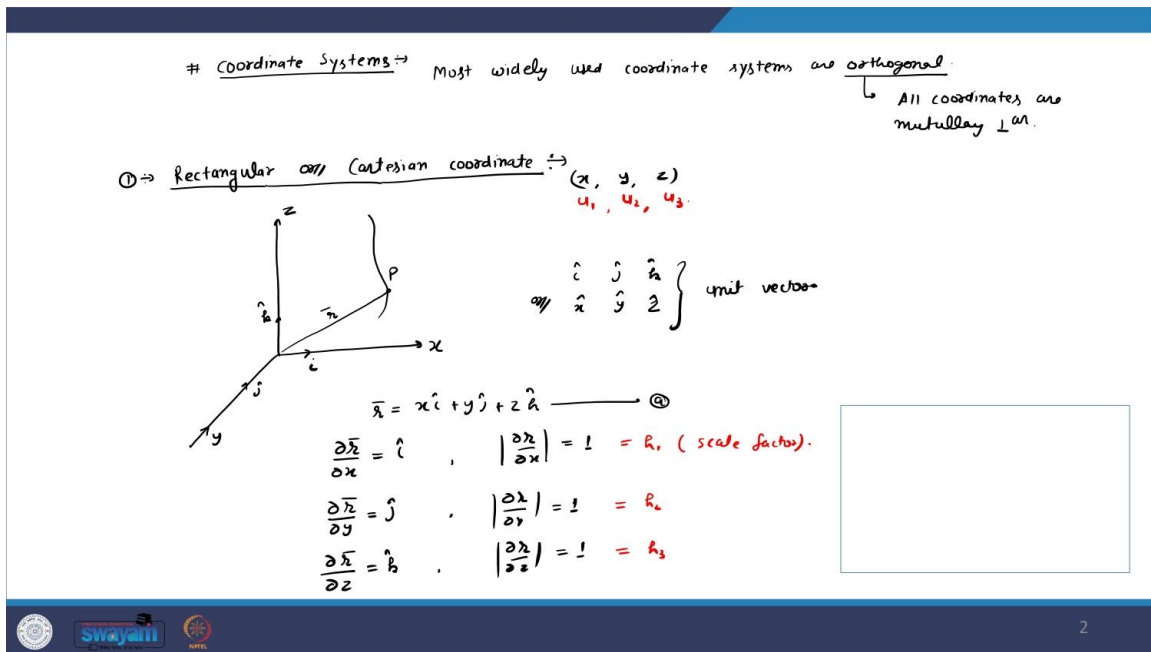 # Coordinate Systems :→ Most widely used coordinate systems are orthogonal.
↳ All coordinates are
mutullay ⊥ar.
① → Rectangular or Cartesian coordinate :→ (x, y, z)
u₁, u₂, u₃.
z
P
k̂
r̄
x
i
ĵ
y
î ĵ k̂
or x̂ ŷ ẑ } unit vector
r̄ = xî + yĵ + zk̂ ——— ⓐ
∂r̄/∂x = î , |∂r/∂x| = 1 = h₁ (scale factor).
∂r̄/∂y = ĵ , |∂r/∂y| = 1 = h₂
∂r̄/∂z = k̂ , |∂r/∂z| = 1 = h₃
swayam
NPTEL
2